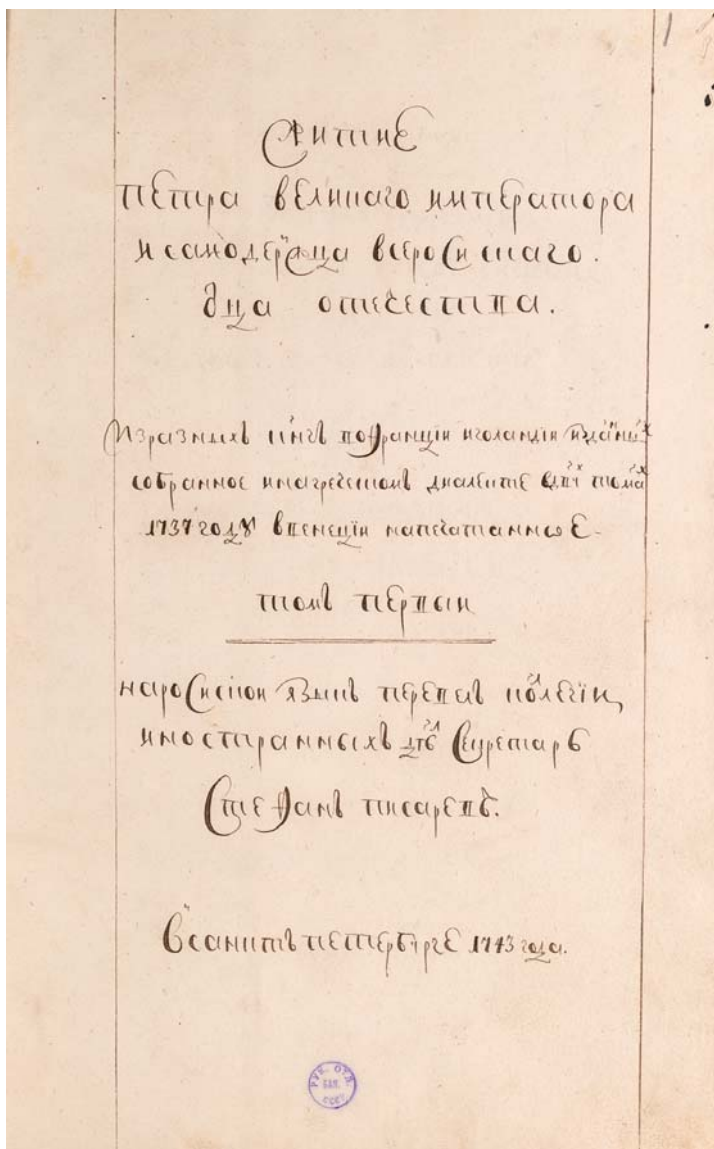 1
Житие
петра великаго императора
и самодержца всеросискаго.
отца отечества.
Изразныхъ книгъ пофранціи иголандіи изданныхъ
собранное инагреческомъ диалекте вдвухъ томахъ
1737 году ввенеціи напечатанное
томъ первыи
наросискои языкъ перевелъ колегіи
иностранныхъ делъ секретарь
Стефанъ писаревъ.
Всанктъ петербурге 1743 года.
РУК. ОТД.
БАН.
СССР